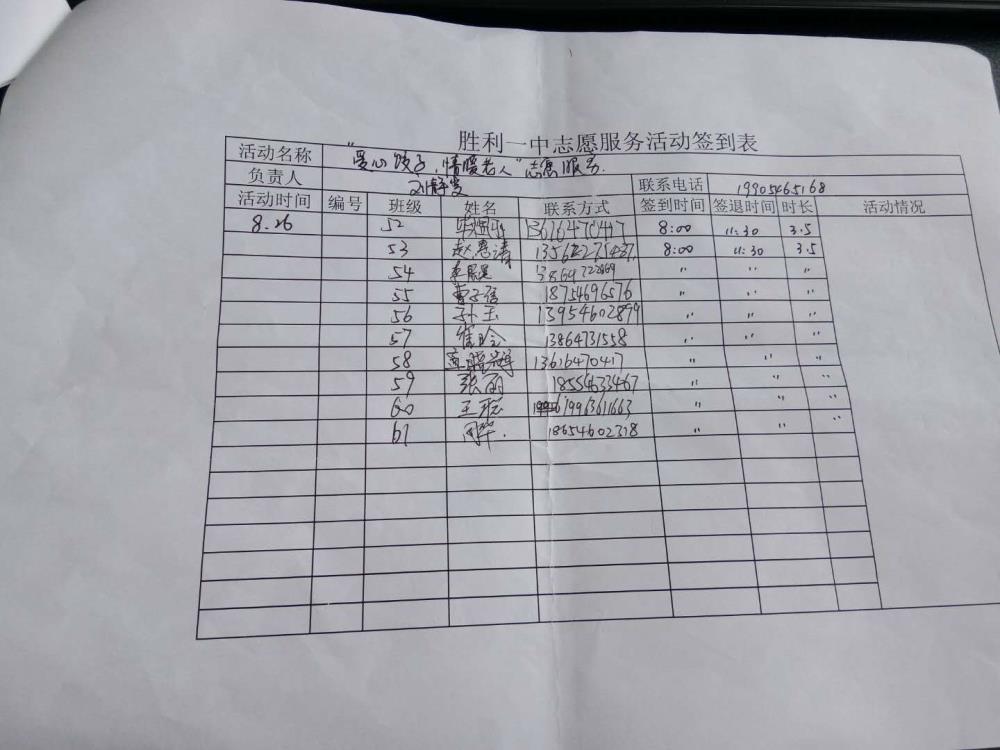 胜利一中志愿服务活动签到表
活动名称 "爱心饺子,情暖老人"志愿服务.
负责人 联系电话 19905465168
活动时间 编号 班级 姓名 联系方式 签到时间 签退时间 时长 活动情况
8.26 52 13616470417 8:00 11:30 3.5
53 赵惠清 8:00 11:30 3.5
54 " " "
55 曹子信 18754696576 " " "
56 孙玉 13954602879 " " "
57 崔晗 13864731558 " " "
58 13616470417 " " "
59 张丽 18554633467 " " "
60 王聪 19963611663 " " "
61 周华. 18654602318 " " "